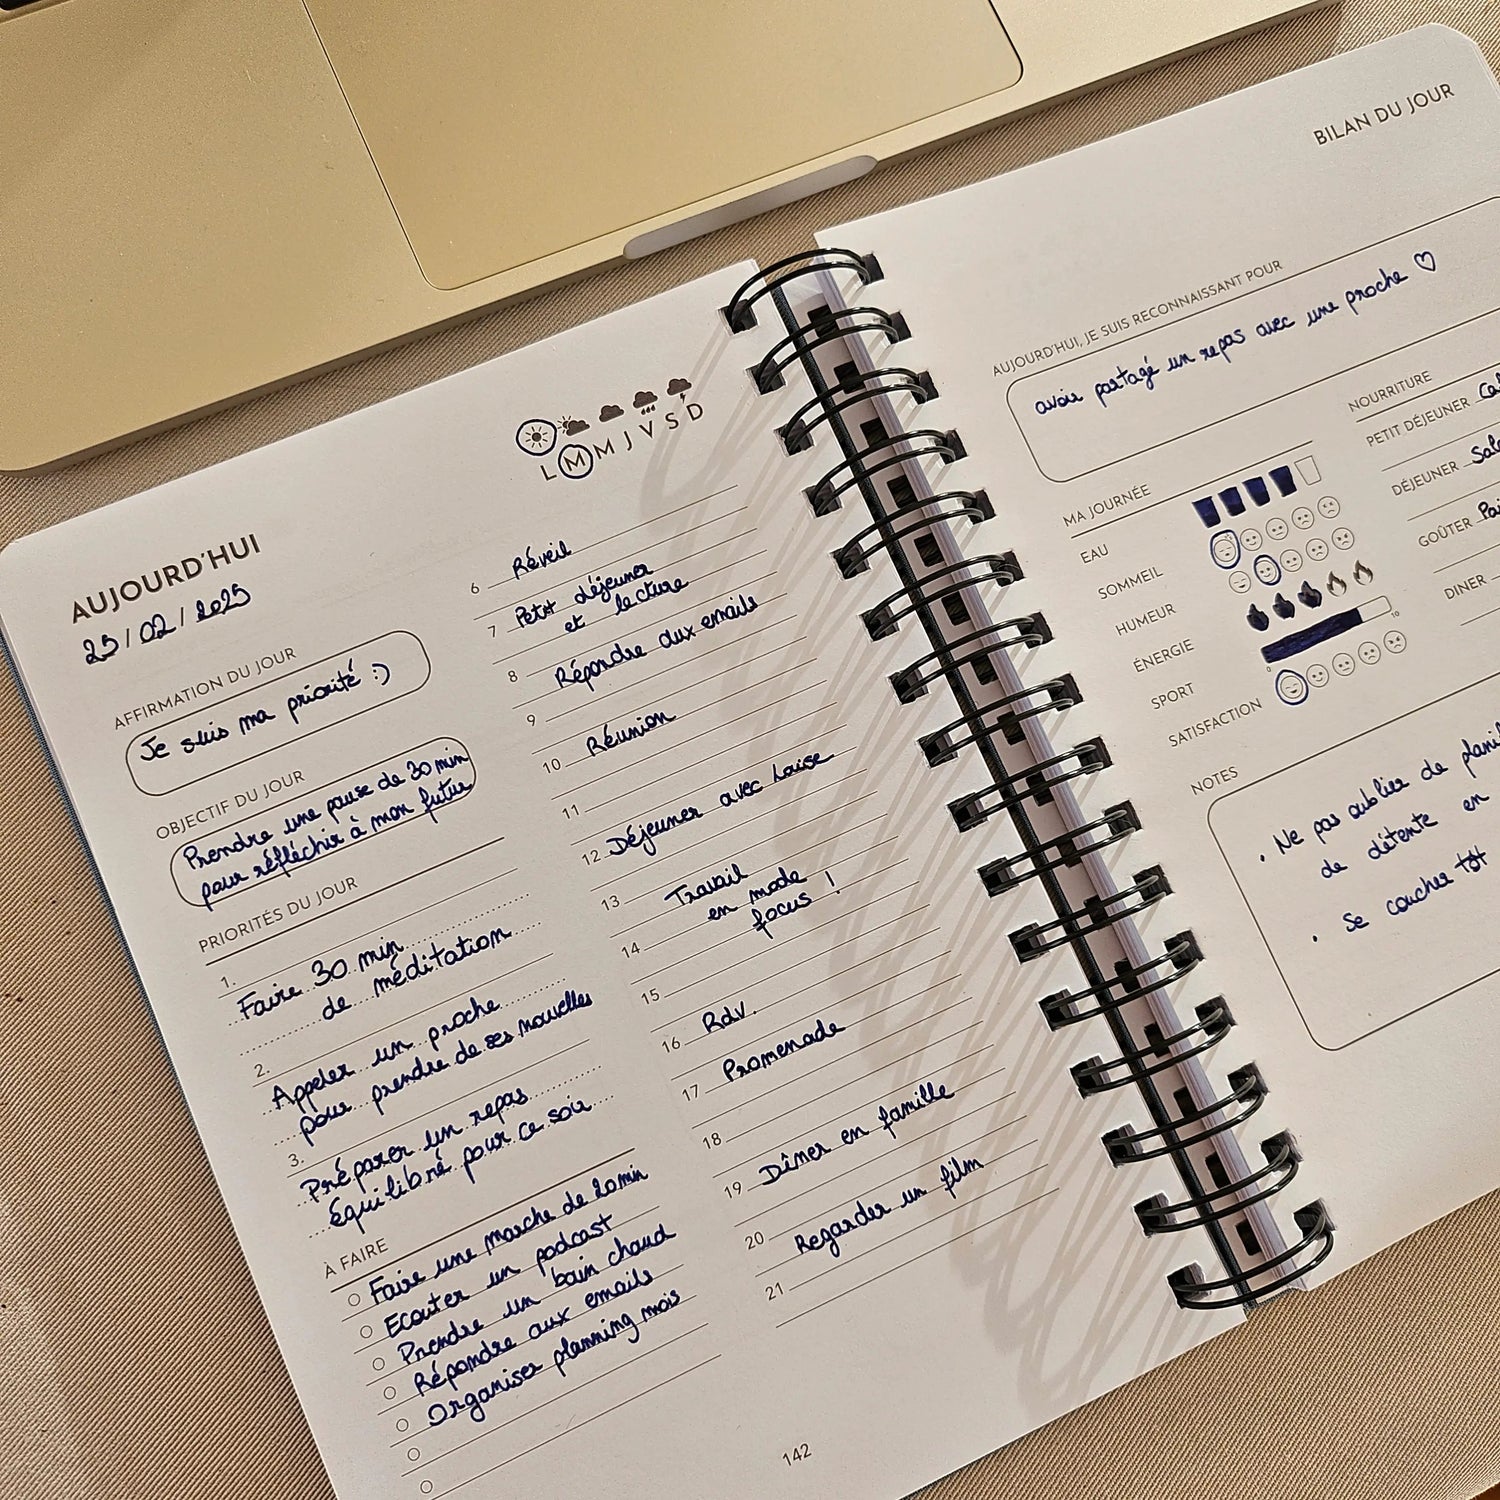 AUJOURD'HUI
25/02/2025
L M M J V S D
AFFIRMATION DU JOUR
Je suis ma priorité :)
OBJECTIF DU JOUR
Prendre une pause de 30 min
pour réfléchir à mon futur
PRIORITÉS DU JOUR
1.
Faire 30 min
de méditation
2.
Appeler un proche
pour prendre de ses nouvelles
3.
Préparer un repas
équilibré pour ce soir
À FAIRE
Faire une marche de 20min
Ecouter un podcast
Prendre un bain chaud
Répondre aux emails
Organiser planning mois
6 Réveil
7 Petit déjeuner
et lecture
8 Répondre aux emails
9
10 Réunion
11
12 Déjeuner avec Louise
13 Travail
en mode
focus !
14
15
16 Rdv.
17 Promenade
18
19 Dîner en famille
20 Regarder un film
21
142
BILAN DU JOUR
AUJOURD'HUI, JE SUIS RECONNAISSANT POUR
avoir partagé un repas avec une proche ♡
MA JOURNÉE
EAU
SOMMEIL
HUMEUR
ÉNERGIE
SPORT
0 10
SATISFACTION
NOURRITURE
PETIT DÉJEUNER
DÉJEUNER
GOÛTER
DINER
NOTES
• Ne pas oublier de
de détente en
• Se coucher tôt